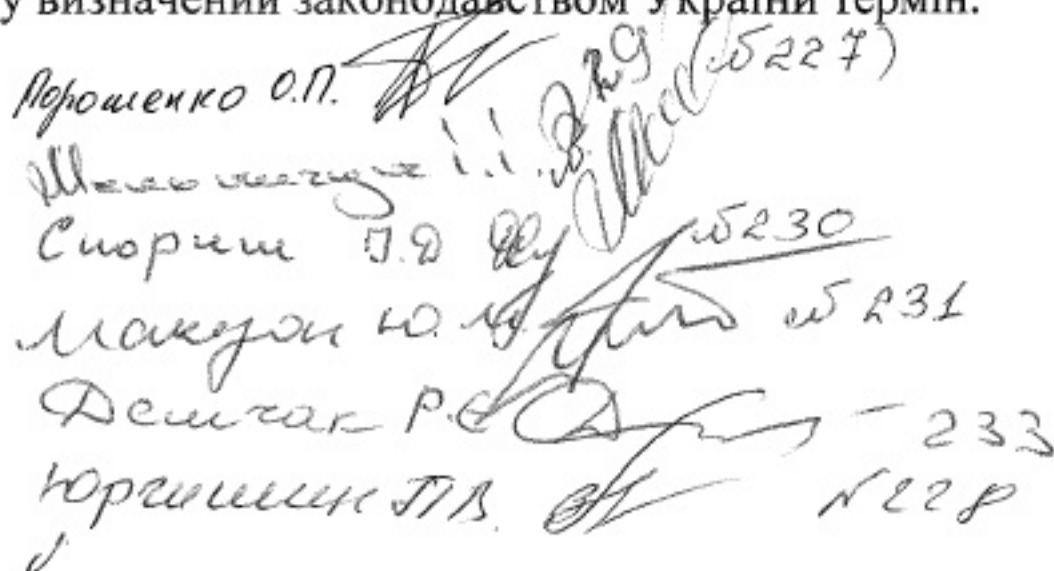 у визначений законодавством України термін.
Порошенко О.П.
І.І. (№227)
Спориш І.Д №230
Макудон Ю.М. №231
Демчак Р.Є - 233
Юргишин П.В. №228